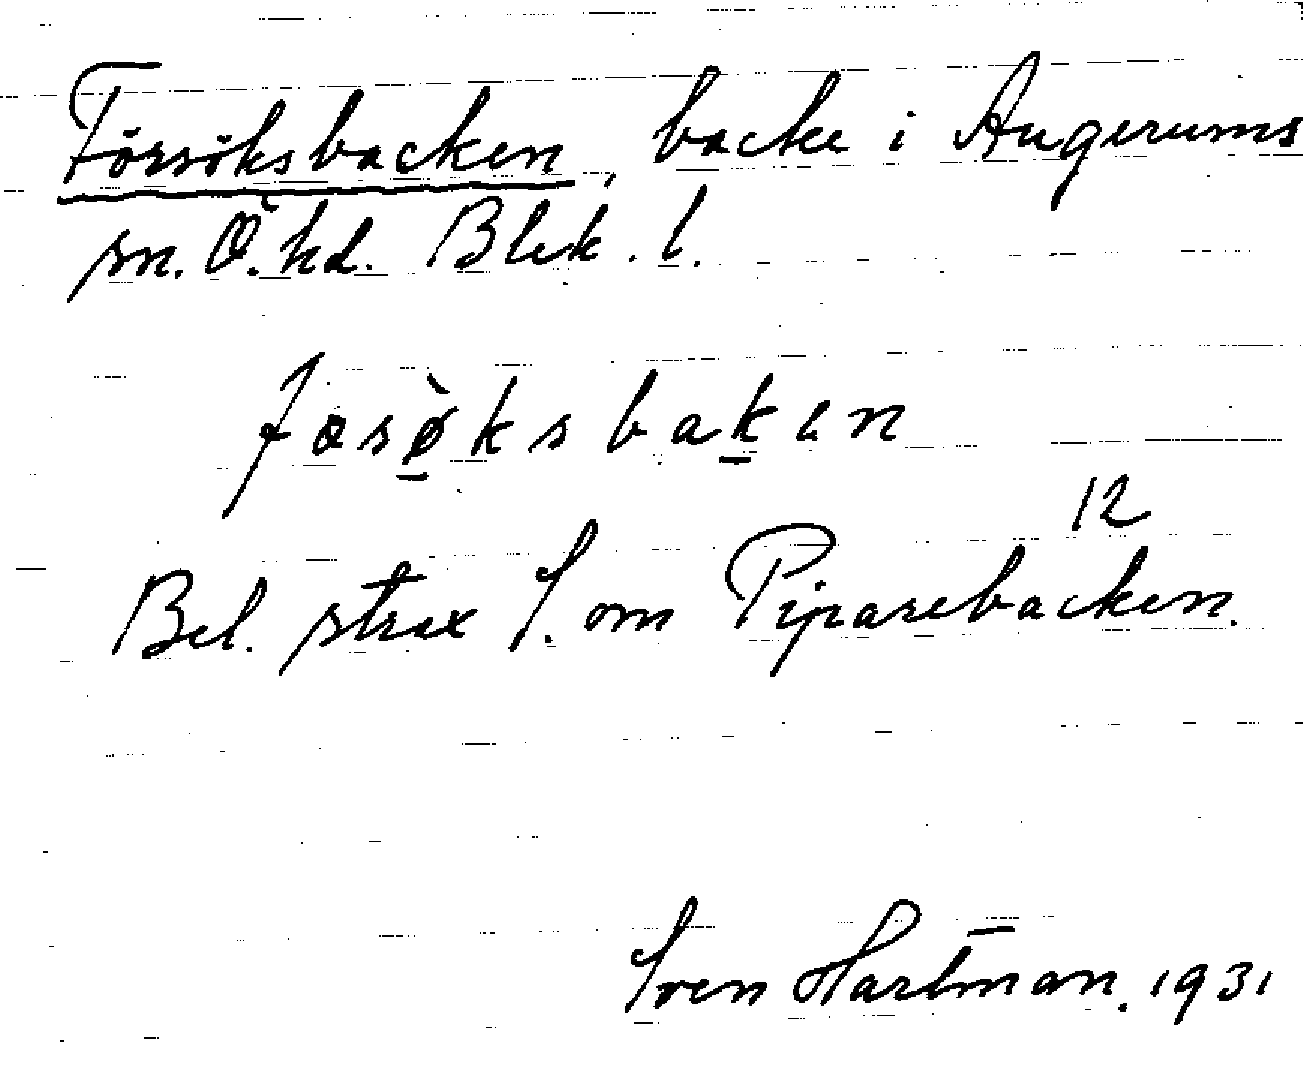 Försöksbacken, backe i Augerums
sn. Ö. hd. Blek. l.
fɵsø̠̀ksbak̠ɩn
12
Bel. strax S. om Piparebacken.
Sven Hartman. 1931